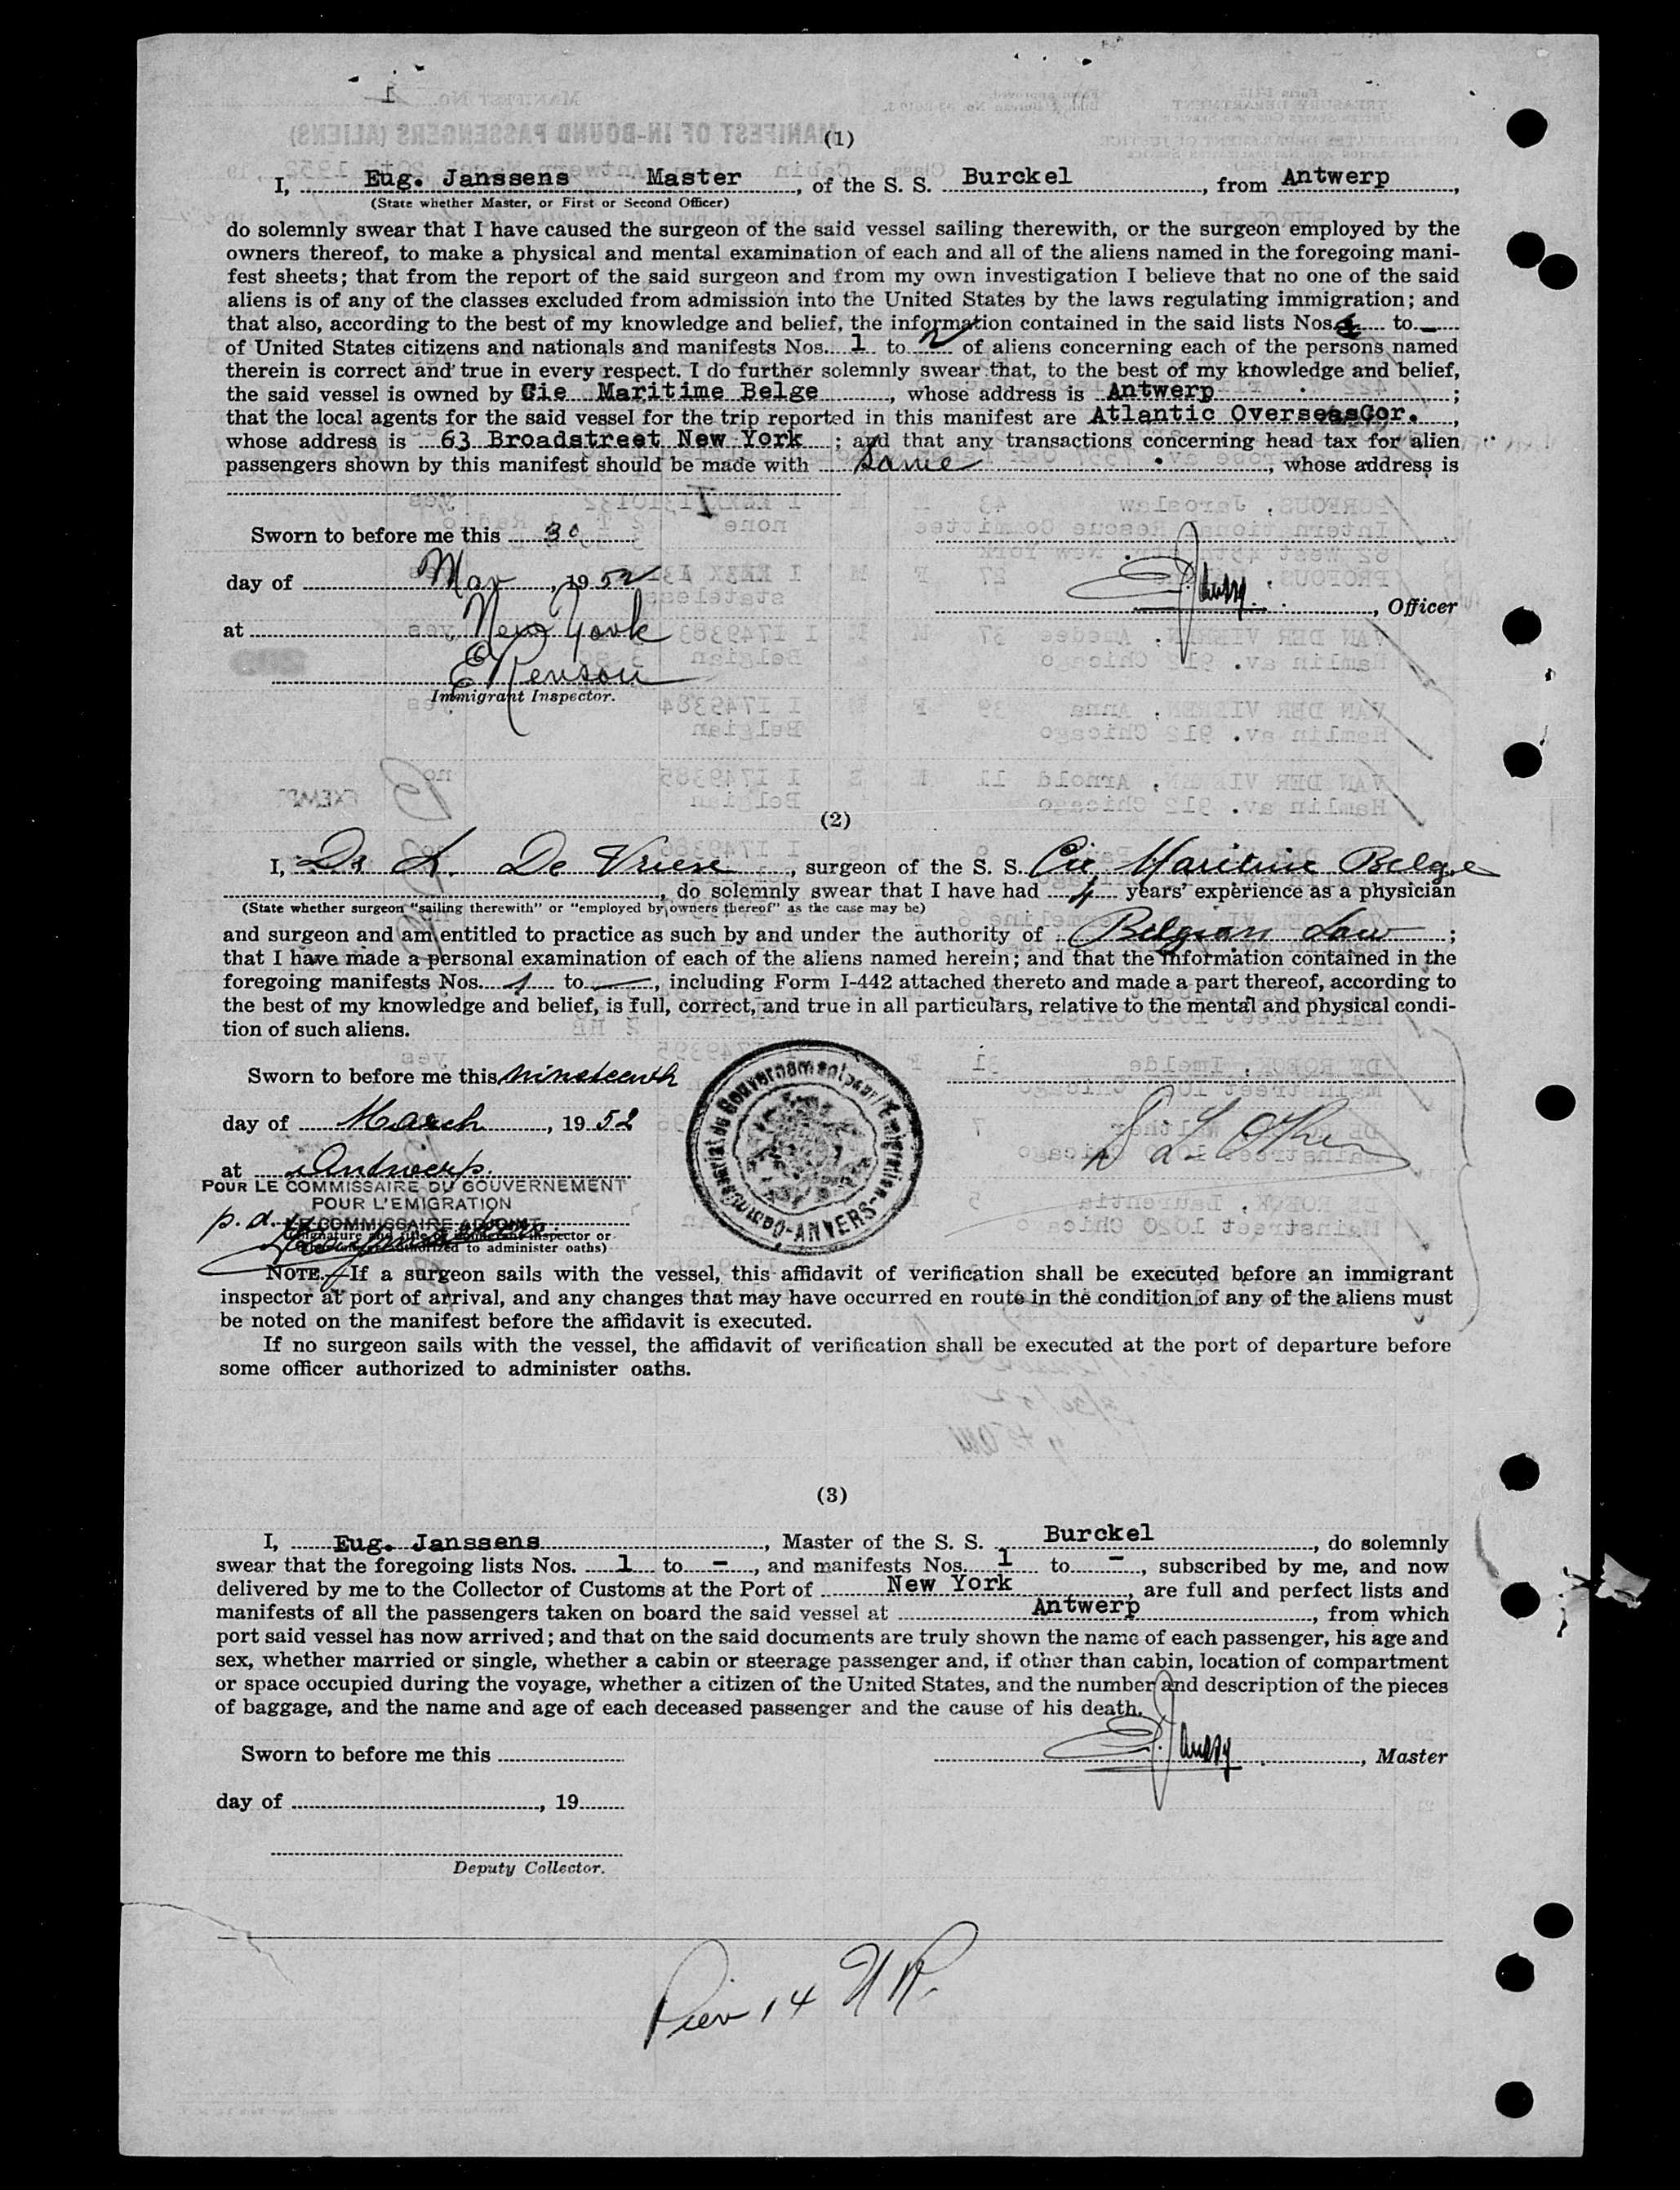 (1)
I, Eug. Janssens Master, of the S. S. Burckel, from Antwerp,
(State whether Master, or First or Second Officer)
do solemnly swear that I have caused the surgeon of the said vessel sailing therewith, or the surgeon employed by the
owners thereof, to make a physical and mental examination of each and all of the aliens named in the foregoing mani-
fest sheets; that from the report of the said surgeon and from my own investigation I believe that no one of the said
aliens is of any of the classes excluded from admission into the United States by the laws regulating immigration; and
that also, according to the best of my knowledge and belief, the information contained in the said lists Nos. to -
of United States citizens and nationals and manifests Nos. 1 to 2 of aliens concerning each of the persons named
therein is correct and true in every respect. I do further solemnly swear that, to the best of my knowledge and belief,
the said vessel is owned by Cie Maritime Belge, whose address is Antwerp;
that the local agents for the said vessel for the trip reported in this manifest are Atlantic OverseasCor.,
whose address is 63 Broadstreet New York; and that any transactions concerning head tax for alien
passengers shown by this manifest should be made with Same, whose address is
Sworn to before me this 30
day of Mar, 1952
, Officer
at New York
E Renson
Immigrant Inspector.
(2)
I, Dr De Vriese, surgeon of the S. S. Cie Maritime Belge
, do solemnly swear that I have had 4 years' experience as a physician
(State whether surgeon "sailing therewith" or "employed by owners thereof" as the case may be)
and surgeon and am entitled to practice as such by and under the authority of Belgian Law;
that I have made a personal examination of each of the aliens named herein; and that the information contained in the
foregoing manifests Nos. 1 to -, including Form I-442 attached thereto and made a part thereof, according to
the best of my knowledge and belief, is full, correct, and true in all particulars, relative to the mental and physical condi-
tion of such aliens.
Sworn to before me this nineteenth
day of March, 1952
at Antwerp.
POUR LE COMMISSAIRE DU GOUVERNEMENT
POUR L'EMIGRATION
p. d. LE COMMISSAIRE ADJOINT
(Signature and title of immigrant inspector or
authorized to administer oaths)
Commissariat du Gouvernement pour l'Emigration - ANVERS -
NOTE.—If a surgeon sails with the vessel, this affidavit of verification shall be executed before an immigrant
inspector at port of arrival, and any changes that may have occurred en route in the condition of any of the aliens must
be noted on the manifest before the affidavit is executed.
If no surgeon sails with the vessel, the affidavit of verification shall be executed at the port of departure before
some officer authorized to administer oaths.
(3)
I, Eug. Janssens, Master of the S. S. Burckel, do solemnly
swear that the foregoing lists Nos. 1 to -, and manifests Nos. 1 to -, subscribed by me, and now
delivered by me to the Collector of Customs at the Port of New York, are full and perfect lists and
manifests of all the passengers taken on board the said vessel at Antwerp, from which
port said vessel has now arrived; and that on the said documents are truly shown the name of each passenger, his age and
sex, whether married or single, whether a cabin or steerage passenger and, if other than cabin, location of compartment
or space occupied during the voyage, whether a citizen of the United States, and the number and description of the pieces
of baggage, and the name and age of each deceased passenger and the cause of his death.
Sworn to before me this
, Master
day of , 19
Deputy Collector.
Pier 14 N R.